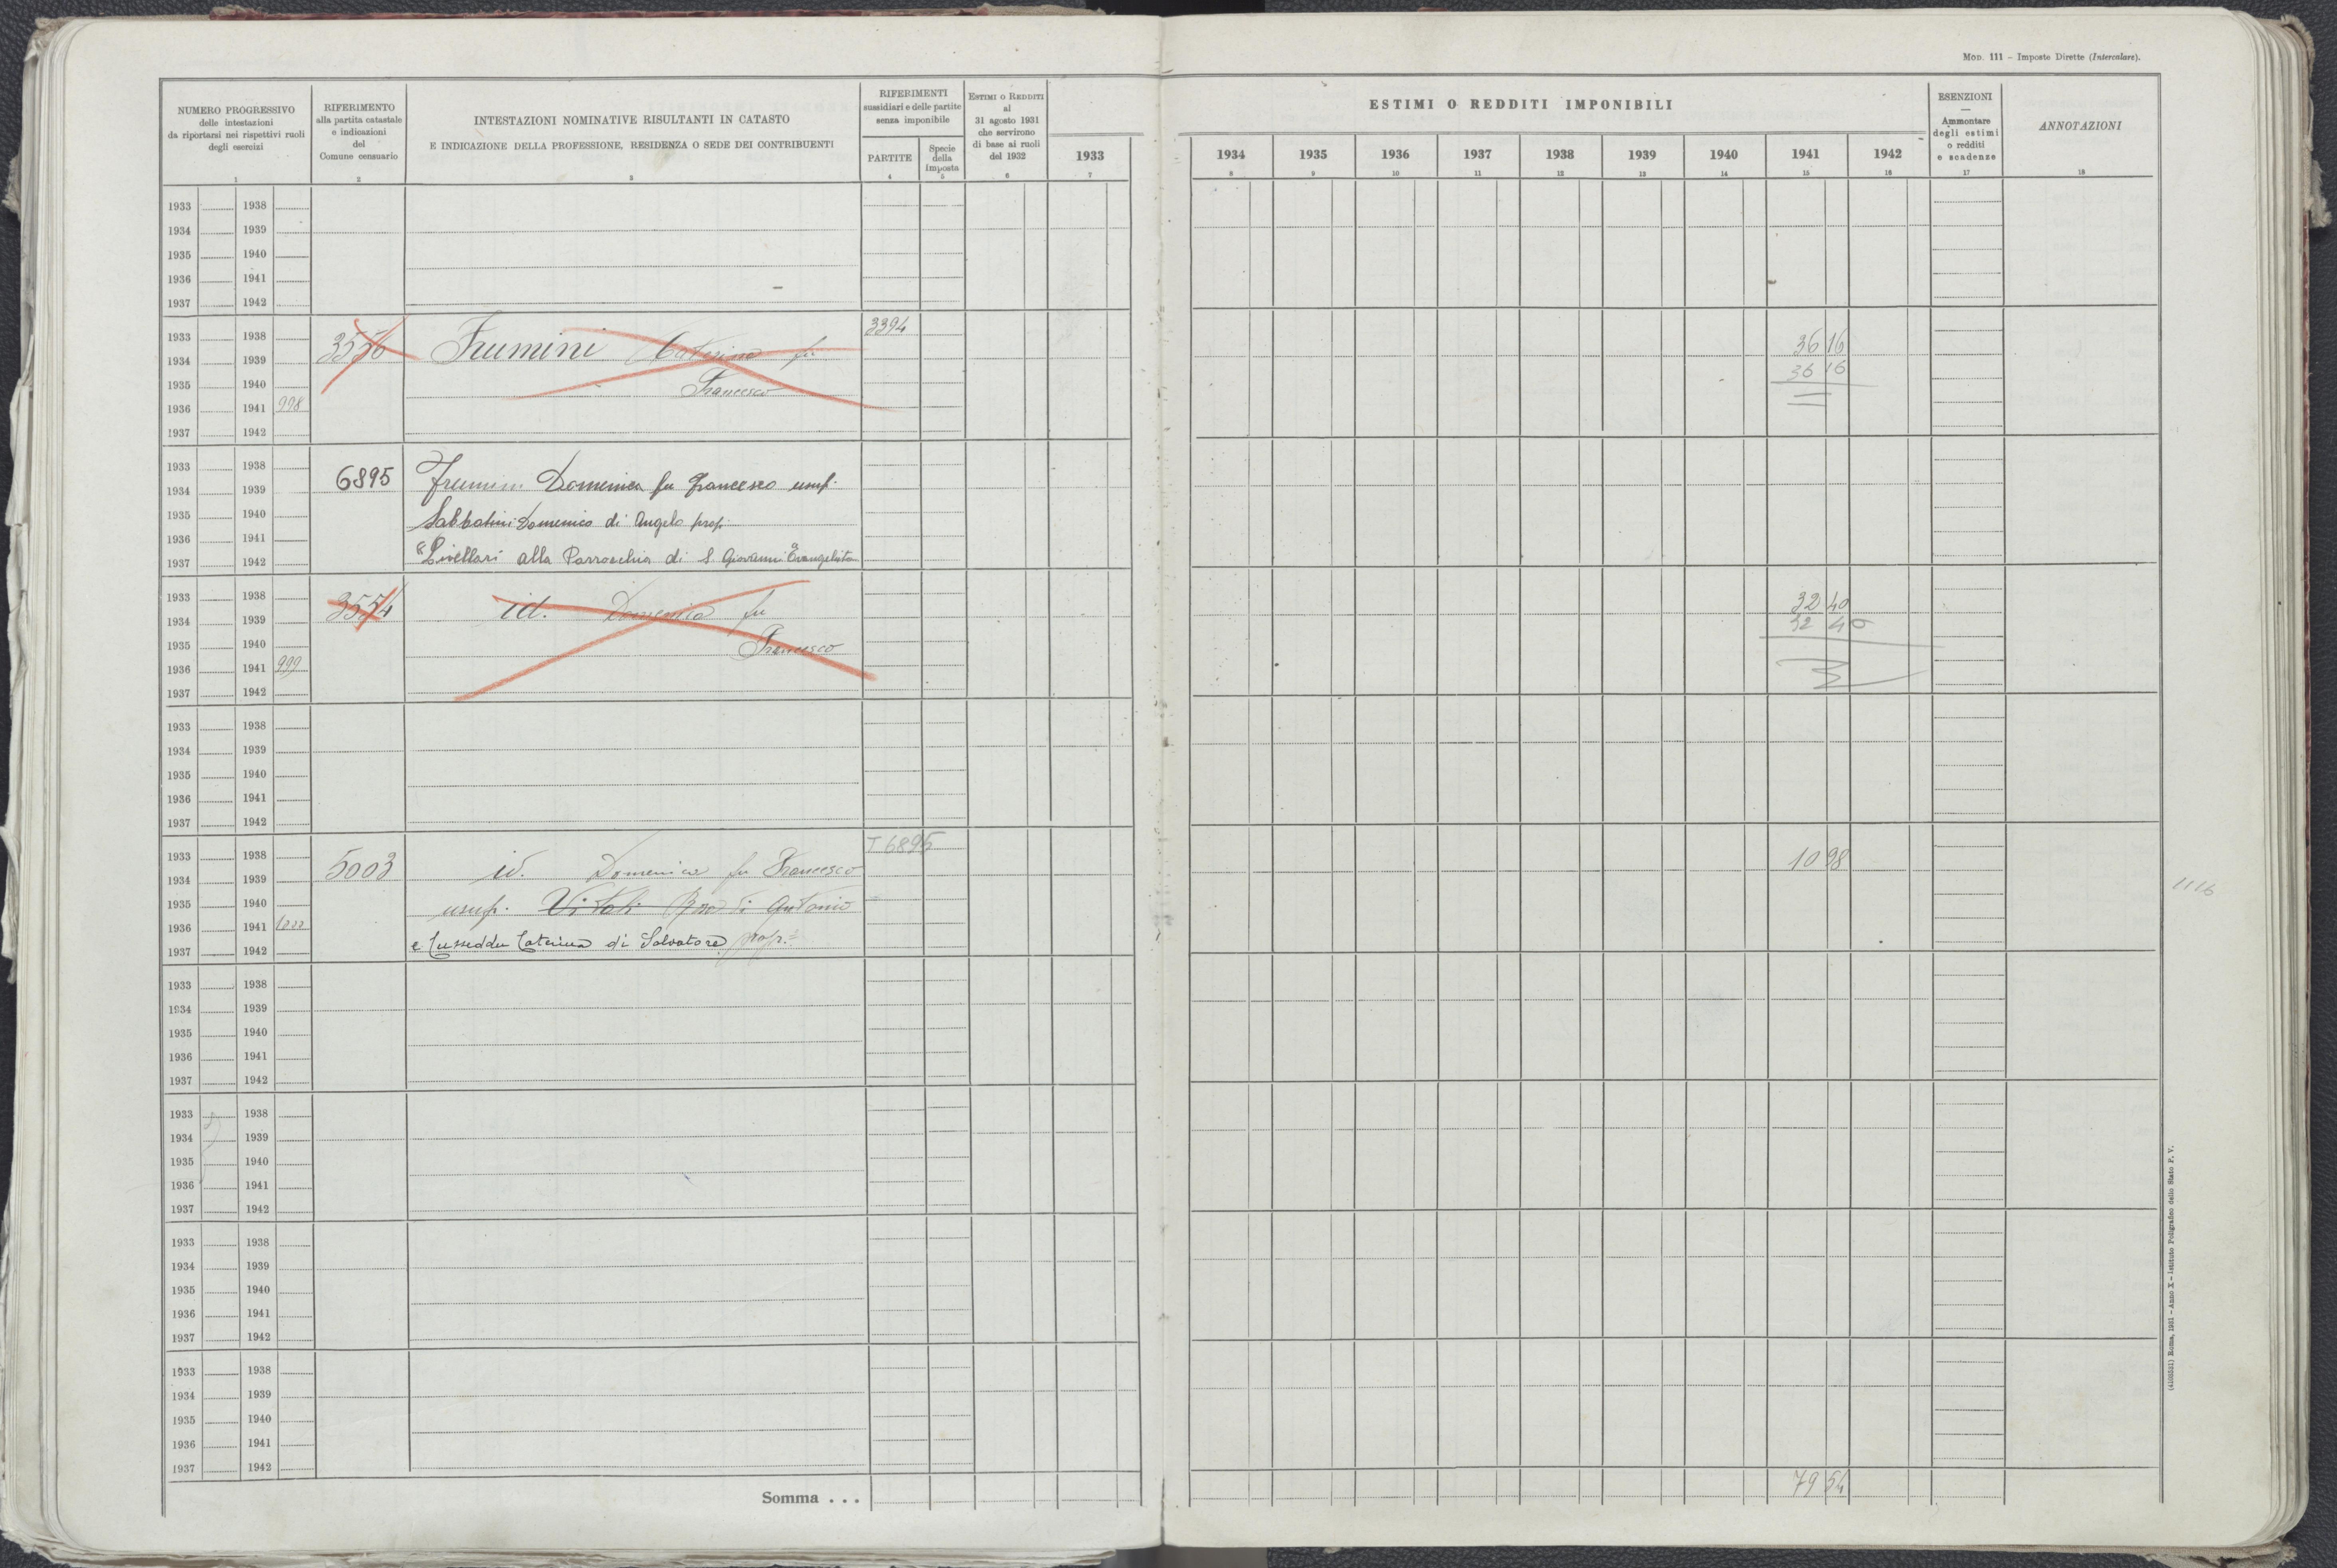 Mod. 111 – Imposte Dirette (Intercalare).
NUMERO PROGRESSIVO
delle intestazioni
da riportarsi nei rispettivi ruoli
degli esercizi
1
RIFERIMENTO
alla partita catastale
e indicazioni
del
Comune censuario
2
INTESTAZIONI NOMINATIVE RISULTANTI IN CATASTO
E INDICAZIONE DELLA PROFESSIONE, RESIDENZA O SEDE DEI CONTRIBUENTI
3
RIFERIMENTI
sussidiari e delle partite
senza imponibile
PARTITE
4
Specie
della
imposta
5
Estimi o Redditi
al
31 agosto 1931
che servirono
di base ai ruoli
del 1932
6
1933
7
ESTIMI O REDDITI IMPONIBILI
1934 1935 1936 1937 1938 1939 1940 1941 1942
8 9 10 11 12 13 14 15 16
ESENZIONI
—
Ammontare
degli estimi
o redditi
e scadenze
17
ANNOTAZIONI
18
1933 1938
1934 1939
1935 1940
1936 1941
1937 1942
3394
1933 1938
3556 Frumini Caterina fu 36 16
1934 1939
Francesco 36 16
1935 1940
1936 1941 998
1937 1942
1933 1938
6895 Frumini Domenica fu Francesco usuf.
1934 1939
1935 1940 Sabbatini Domenico di Angelo prop.
1936 1941
1937 1942 Livellari alla Parrocchia di S. Giovanni Evangelista
1933 1938
3554 id. Domenica fu 32 40
1934 1939
32 40
1935 1940 Francesco
1936 1941 999
1937 1942
1933 1938
1934 1939
1935 1940
1936 1941
1937 1942
T 6895
1933 1938
5003 id. Domenica fu Francesco 10 98
1934 1939
1116
1935 1940 usuf. Vitali Rosa di Antonio
1936 1941 1000
e Cusseddu Caterina di Salvatore prop.
1937 1942
1933 1938
1934 1939
1935 1940
1936 1941
1937 1942
1933 1938
1934 1939
1935 1940
1936 1941
1937 1942
1933 1938
1934 1939
1935 1940
1936 1941
1937 1942
1933 1938
1934 1939
1935 1940
1936 1941
1937 1942
Somma . . . 79 54
(4105551) Roma, 1931 – Anno X – Istituto Poligrafico dello Stato P. V.